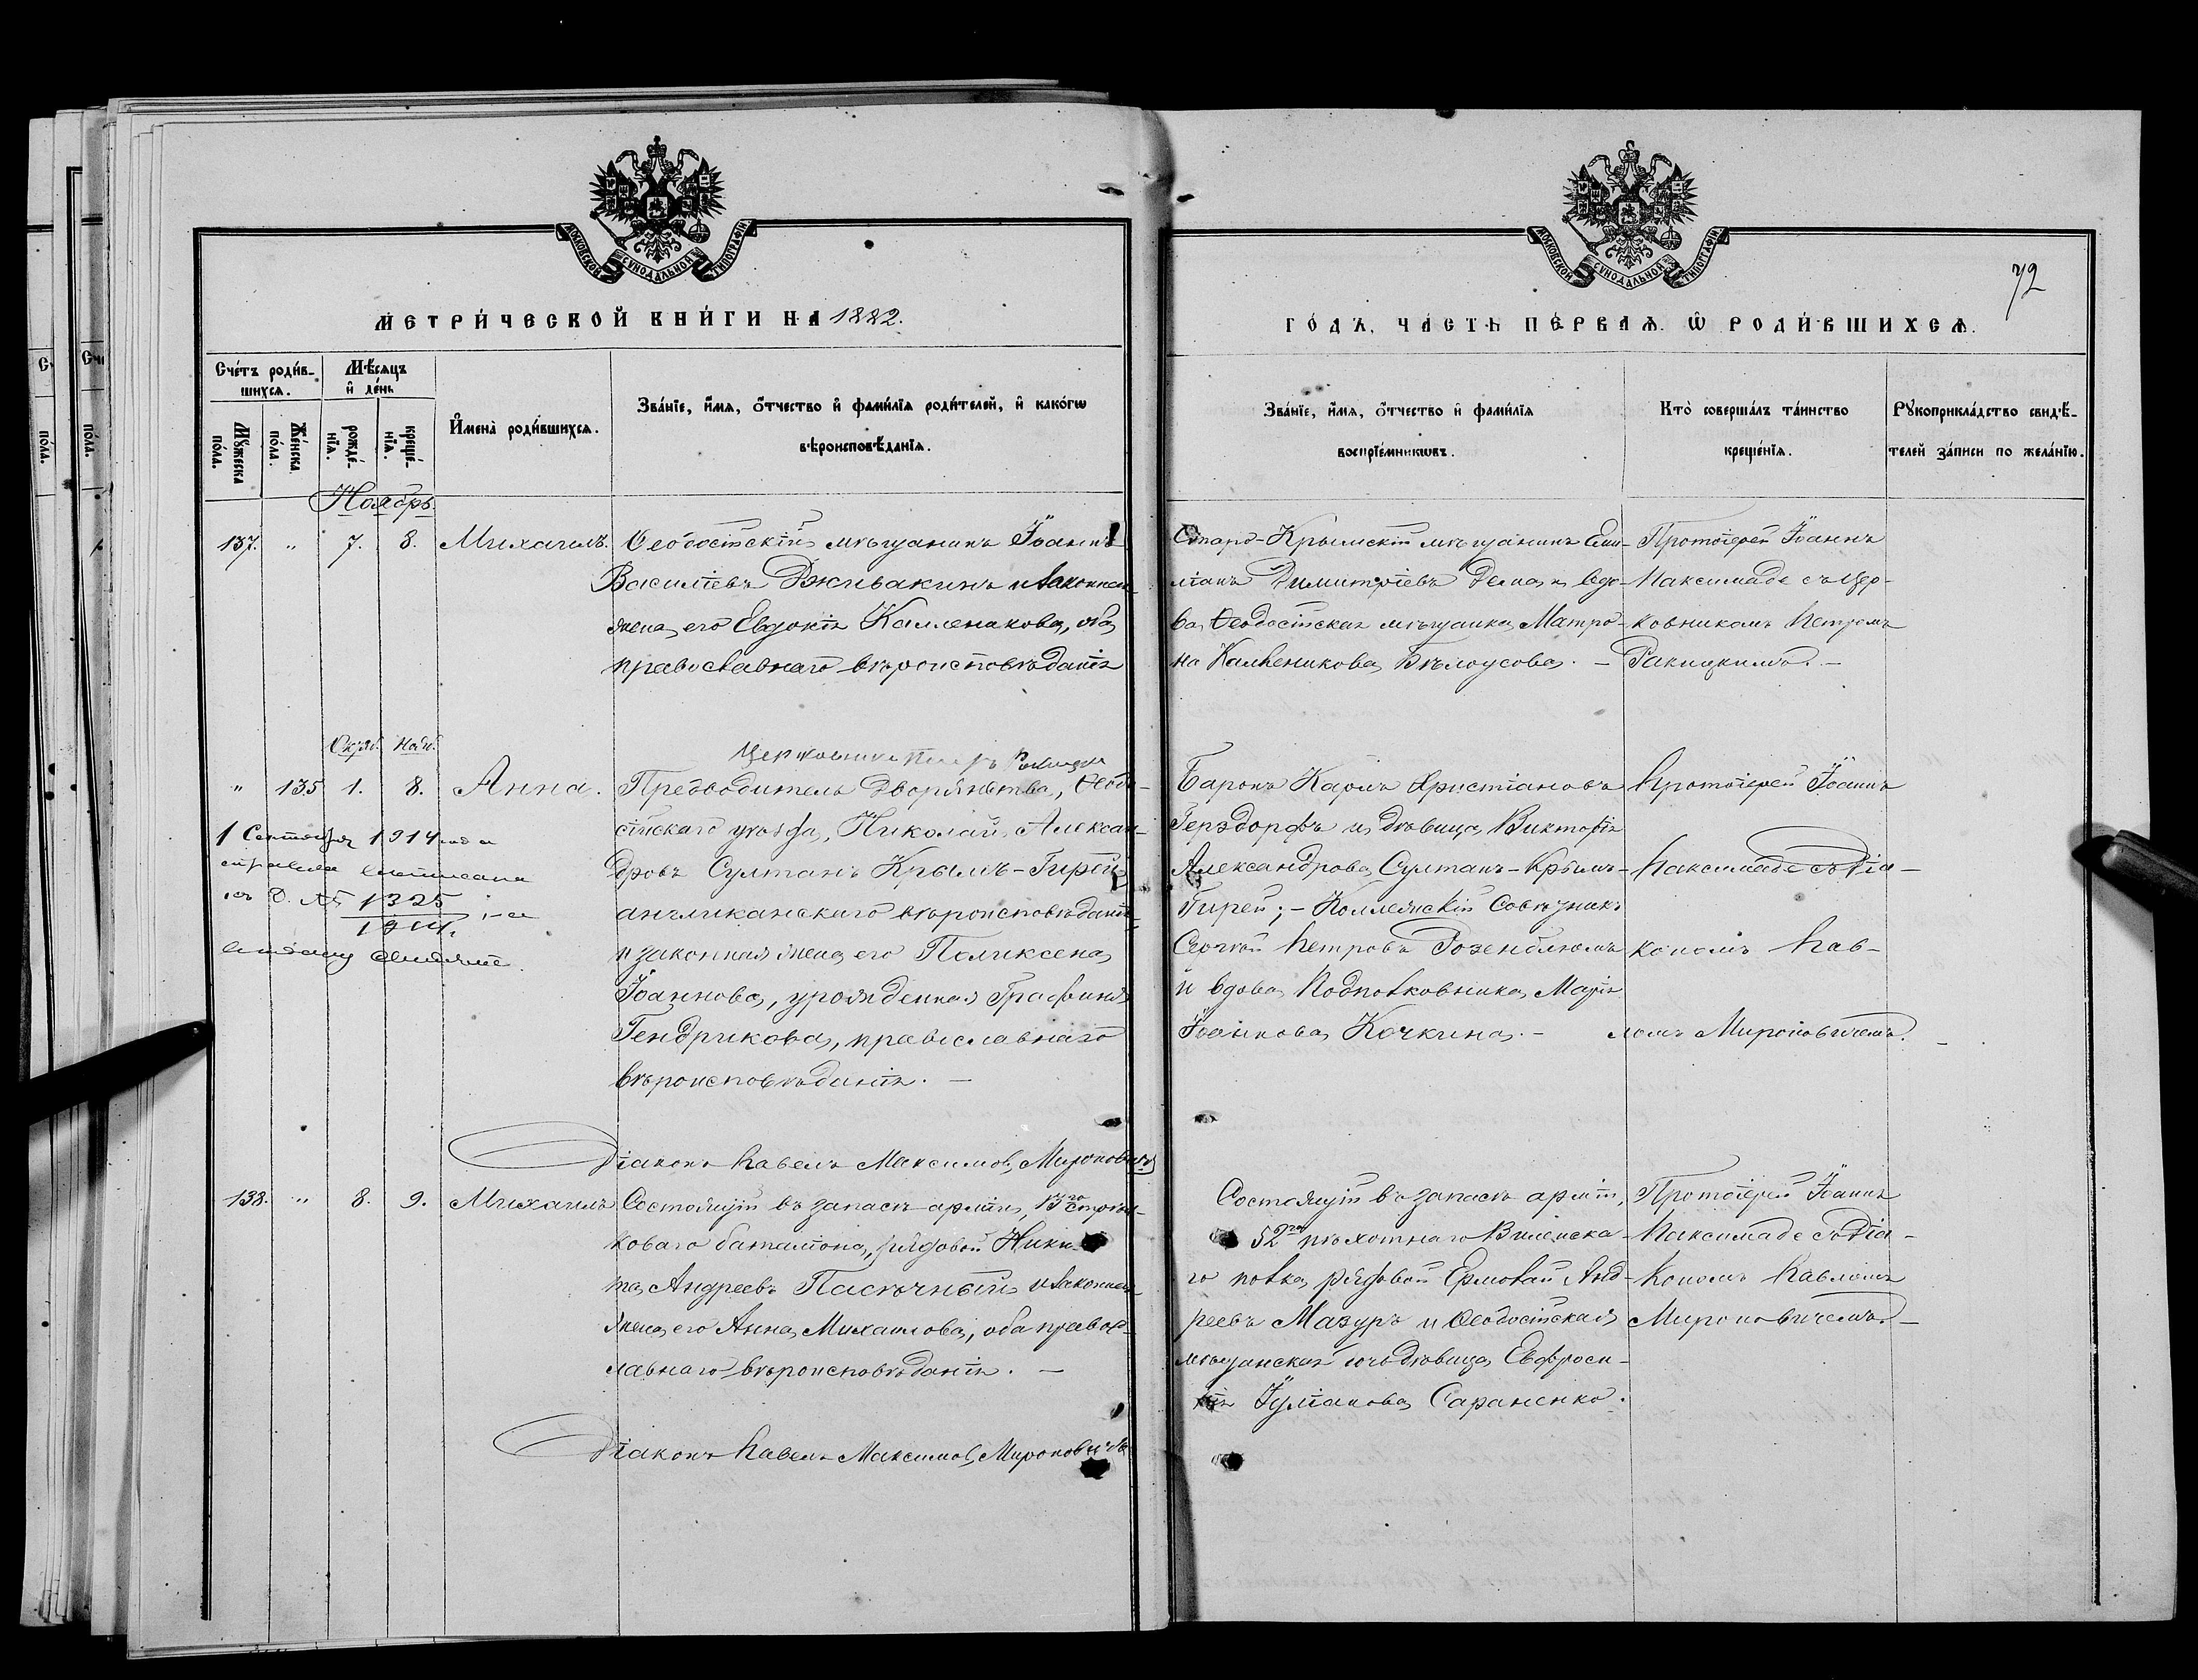 МОСКОВСКОЙ СѴНОДАЛЬНОЙ ТИПОГРАФІИ
МЕТРИ́ЧЕСКОЙ КНИ́ГИ НА 1882.
Сче́тъ роди́в-
шихся.
Мѣ́сяцъ
и҆ де́нь
Мꙋ́жеска
по́ла.
Же́нска
по́ла.
рожде́-
нїѧ.
креще́-
нїѧ.
И҆мена̀ роди́вшихсѧ.
Зва́нїе, и҆́мѧ, ѻ҆́тчество и҆ фами́лїѧ роди́телей, и҆ како́гѡ
вѣроисповѣ́данїѧ.
Ноябрь
137. " 7. 8. Михаилъ.
Ѳеодосійскій мѣщанинъ Іоаннъ
Василіевъ Дживакинъ и законная
жена его Евдокія Калленикова, оба
православнаго вѣроисповѣданія
Церковникъ Петръ Ракицкій
Октяб. Нояб.
" 135 1. 8. Анна.
Предводитель Дворянства, Ѳеодо-
сійскаго уѣзда, Николай Алексан-
дровъ Султанъ Крымъ-Гирей
англиканскаго вѣроисповѣданія
и законная жена его Поликсена
Іоаннова, урожденная Графиня
Гендрикова, православнаго
вѣроисповѣданія. —
1 Сентября 1914 года
1325
1914.
Діаконъ Павелъ Максимов Мироновичъ
138. " 8. 9. Михаилъ
Состоящій въ запасѣ арміи, 13го стрѣл-
коваго баталіона, рядовой Ники-
та Андреевъ Пасѣчный и законная
жена его Анна Михаилова, оба правос-
лавнаго вѣроисповѣданія. —
Діаконъ Павелъ Максимов Мироновичъ
МОСКОВСКОЙ СѴНОДАЛЬНОЙ ТИПОГРАФІИ
72
ГО́ДЪ, ЧА́СТЬ ПЕ́РВАѦ. Ѡ҆ РОДИ́ВШИХСѦ.
Зва́нїе, и҆́мѧ, ѻ҆́тчество и҆ фами́лїѧ
воспрїе́мникѡвъ.
Кто̀ соверша́лъ та́инство
креще́нїѧ.
Рꙋкоприкла́дство свидѣ́-
телей за́писи по жела́нїю.
Старо-Крымскій мѣщанинъ Еми-
ліанъ Димитріевъ Дема и вдо-
ва Ѳеодосійская мѣщанка Матро-
на Калленикова Бѣлоусова. —
Протоіерей Іоаннъ
Максимаде съ цер-
ковникомъ Петромъ
Ракицкимъ. —
Баронъ Карлъ Христіановъ
Герздорфъ и дѣвица Викторія
Александрова Султанъ-Крымъ-
Гирей; — Коллежскій Совѣтникъ
Сергѣй Петровъ Розенблюмъ
и вдова Подполковника Марія
Іоаннова Кочкина. —
Протоіерей Іоаннъ
Максимаде съ Діа-
кономъ Пав-
ломъ Мироновичемъ. —
Состоящій въ запасѣ арміи,
52го пѣхотнаго Виленска-
го полка, рядовой Ермолай Анд-
реевъ Мазуръ и Ѳеодосійская
мѣщанская дочь дѣвица Евфроси-
нія Іуліанова Сараненко.
Протоіерей Іоаннъ
Максимаде съ Діа-
кономъ Павломъ
Мироновичемъ. —